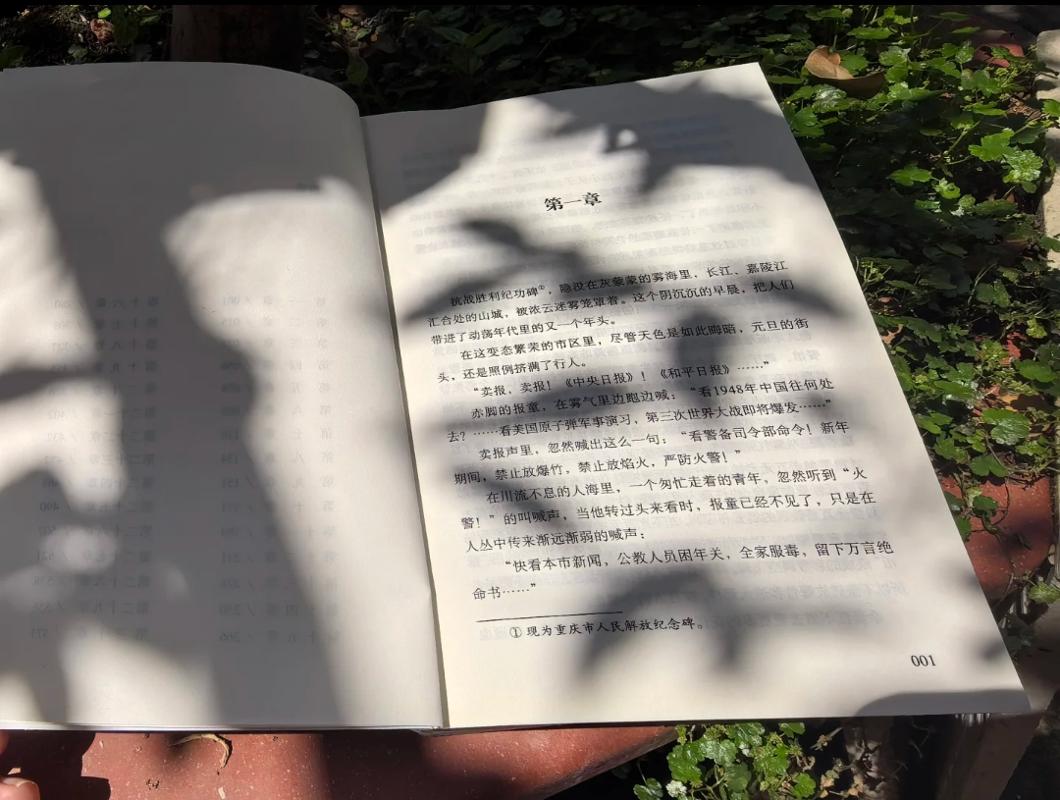 第一章
抗战胜利纪功碑①，隐没在灰蒙蒙的雾海里，长江、嘉陵江
汇合处的山城，被浓云迷雾笼罩着。这个阴沉沉的早晨，把人们
带进了动荡年代里的又一个年头。
在这变态繁荣的市区里，尽管天色是如此晦暗，元旦的街
头，还是照例挤满了行人。
“卖报，卖报！《中央日报》！《和平日报》……”
赤脚的报童，在雾气里边跑边喊：“看1948年中国往何处
去？……看美国原子弹军事演习，第三次世界大战即将爆发……”
卖报声里，忽然喊出这么一句：“看警备司令部命令！新年
期间，禁止放爆竹，禁止放焰火，严防火警！”
在川流不息的人海里，一个匆忙走着的青年，忽然听到“火
警！”的叫喊声，当他转过头来看时，报童已经不见了，只是在
人丛中传来渐远渐弱的喊声：
“快看本市新闻，公教人员困年关，全家服毒，留下万言绝
命书……”
① 现为重庆市人民解放纪念碑。
001